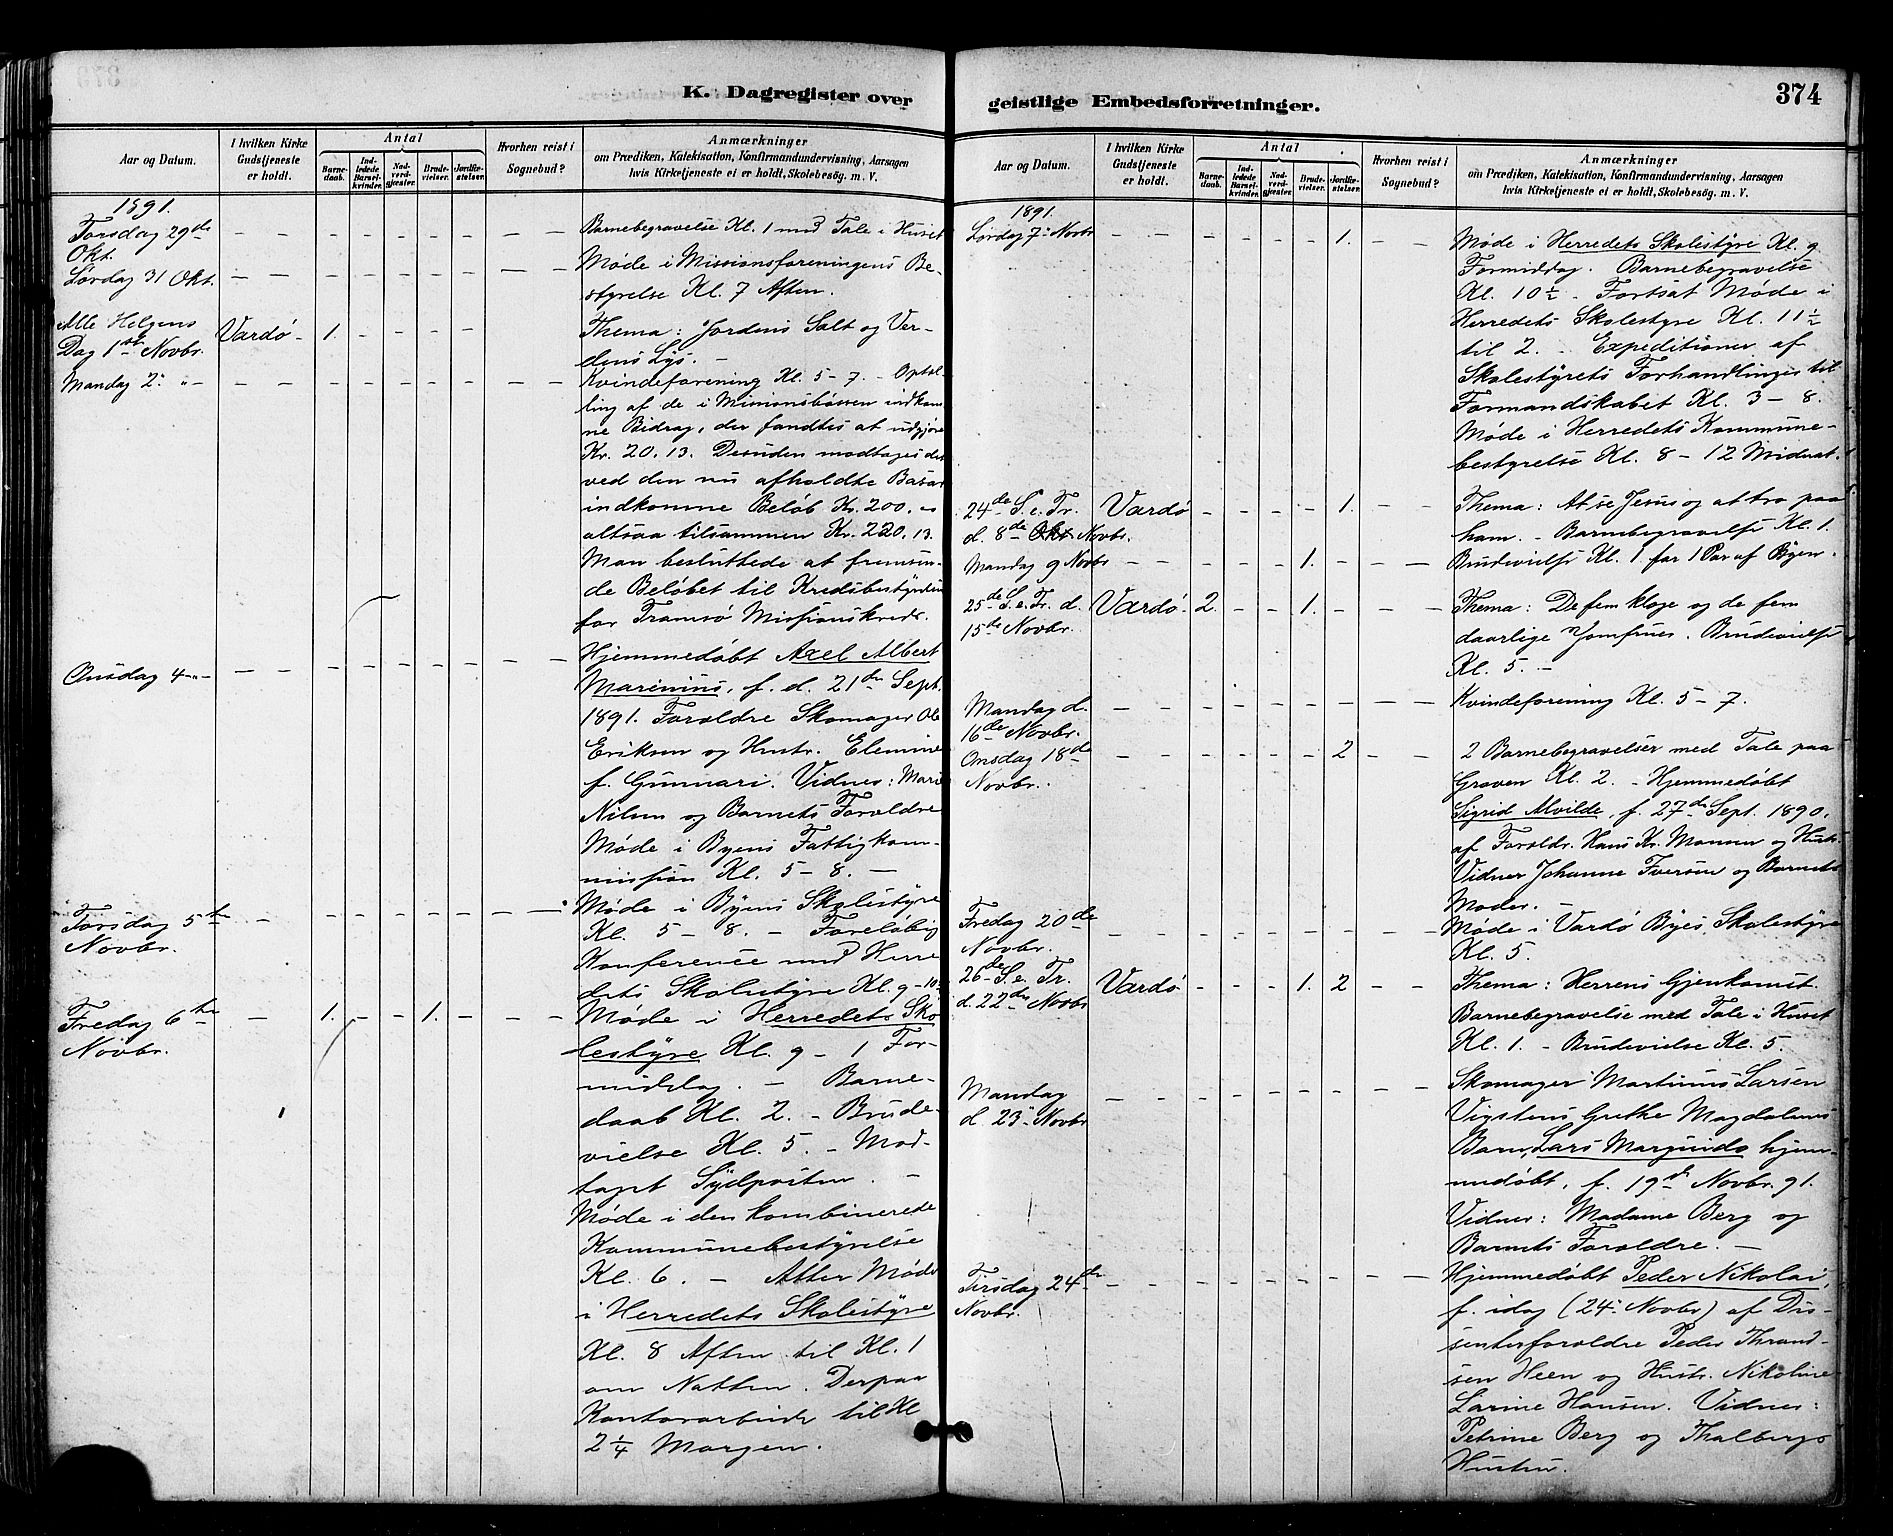 K. Dagregister over
Aar og Datum.
I hvilken Kirke Gudstjeneste er holdt.
Antal
Barnedaab.
Indledede Barselkvinder.
Nadverdgjester.
Brudevielser.
Jordfæstelser.
Hvorhen reist i Sognebud?
Anmærkninger
om Prædiken, Katekisation, Konfirmandundervisning, Aarsagen
hvis Kirketjeneste ei er holdt, Skolebesøg. m. V.
1891.
Torsdag 29de
Okt.
Barnebegravelse Kl. 1 med Tale i Huset
Lørdag 31 Okt.
Møde i Missionsforeningens Be-
styrelse Kl. 7 Aften.
Alle Helgens
Dag 1ste Novbr.
Vardø
1.
Thema: Jordens Salt og Ver-
dens Lys. -
Mandag 2. " -
Kvindeforening Kl. 5 - 7. - Optæl-
ling af de i Missionsbøssen indkom-
ne Bidrag, der fandtes at udgjøre
Kr. 20. 13. Desuden modtages det
ved den nu afholdte Basar
indkomne Beløb Kr. 200. -
altsaa tilsammen Kr. 220. 13.
Man besluttede at fremsen-
de Beløbet til Kredsbestyrelsen
for Tromsø Missionskreds.
Onsdag 4 - " -
Hjemmedøbt Axel Albert
Marinius, f. d. 21de Sept.
1891. Forældre Skomager Ole
Eriksen og Hustr. Elemine
f. Gunnari. Vidnes: Marie
Nilsen og Barnets Forældre
Møde i Byens Fattigkom-
mission Kl. 5 - 8. -
Torsdag 5te
Novbr.
Møde i Byens Skolestyre
Kl. 5 - 8. - Foreløbig
Konference med Herre
dets Skolestyre Kl. 9 - 10
Fredag 6te
Novbr.
1.
1.
Møde i Herredets Sko
lestyre Kl. 9 - 1 For-
middag. - Barne-
daab Kl. 2. - Brude-
vielse Kl. 5. - Mod-
taget Sydposten. -
Møde i den kombinerede
Kommunebestyrelse
Kl. 6. - Atter Møde
i Herredets Skolestyre
Kl. 8 Aften til Kl. 1
om Natten. Derpaa
Kontorarbeide til Kl
2 1/4 Morgen.
geistlige Embedsforretninger.
374
Aar og Datum.
I hvilken Kirke Gudstjeneste er holdt.
Antal
Barnedaab.
Indledede Barselkvinder.
Nadverdgjester.
Brudevielser.
Jordfæstelser.
Hvorhen reist i Sognebud?
Anmærkninger
om Prædiken, Katekisation, Konfirmandundervisning, Aarsagen
hvis Kirketjeneste ei er holdt, Skolebesøg. m. V.
1891.
Lørdag 7. Novbr
1.
Møde i Herredets Skolestyre Kl. 9
Formiddag. Barnebegravelse
Kl. 10 1/2 - Fortsat Møde i
Herredets Skolestyre Kl. 11 1/2
til 2. - Expeditioner af
Skolestyrets Forhandlinger til
Formandskabet Kl. 3 - 8.
Møde i Herredets Kommune-
bestyrelse Kl. 8 - 12 Midnat.
24de S. e. Tr.
d. 8de Okt Novbr.
Vardø
1.
Thema: At se Jesus og at tro paa
ham. - Barnebegravelse Kl. 1.
Mandag 9 Novbr
1.
Brudevielse Kl. 1 for 1 Par af Byen.
25de S. e. Tr. d.
15de Novbr.
Vardø
2.
1.
Thema: De fem kloge og de fem
daarlige Jomfruer. Brudevielse
Kl. 5. -
Mandag d.
16de Novbr.
Kvindeforening Kl. 5 - 7.
Onsdag 18de
Novbr.
2
2 Barnebegravelser med Tale paa
Graven Kl. 2. - Hjemmedøbt
Sigrid Alvilde, f. 27de Sept. 1890,
af Forældr. Hans Kr. Monsen og Hustr.
Vidner Johanne Iversen og Barnets
Moder. -
Fredag 20de
Novbr.
Møde i Vardø Byes Skolestyre
Kl. 5.
26de S. e. Tr.
d. 22de Novbr
Vardø
1.
2
Thema: Herrens Gjenkomst.
Barnebegravelse med Tale i Huset
Kl. 1. - Brudevielse Kl. 5.
Mandag
d. 23. Novbr
Skomager Martinus Larsen
Grethe Magdalenes
Barn, Lars hjem-
medøbt, f. 19de Novbr. 91.
Vidner: Madame Berg og
Barnets Forældre. -
Tirsdag 24de
Novbr.
Hjemmedøbt Peder Nikolai,
f. idag (24. Novbr) af Dis-
senterforældre Peder Thrand-
sen Heen og Hustr. Nikoline
Larine Hansen. Vidnes:
Petrine Berg og Thalbergs
Hustru.